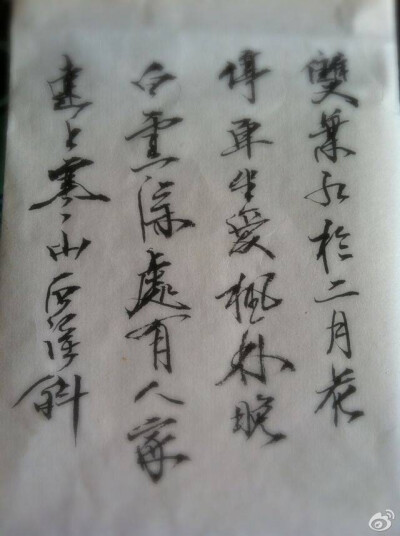 遠上寒山石徑斜
白雲深處有人家
停車坐愛楓林晚
雙葉紅於二月花